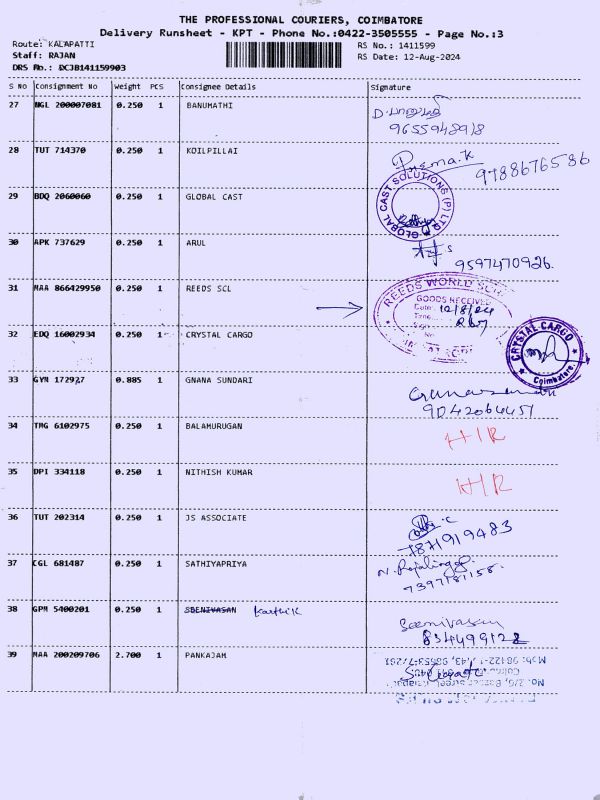 THE PROFESSIONAL COURIERS, COIMBATORE
Delivery Runsheet - KPT - Phone No.:0422-3505555 - Page No.:3
Route: KALAPATTI
Staff: RAJAN
DRS No.: DCJB141159903
RS No.: 1411599
RS Date: 12-Aug-2024
S No Consignment No Weight PCS Consignee Details Signature
27 NGL 200007081 0.250 1 BANUMATHI
9655948918
28 TUT 714370 0.250 1 KOILPILLAI Prema.K
9788676586
29 BDQ 2060060 0.250 1 GLOBAL CAST
GLOBAL CAST SOLUTIONS (P) LTD
30 APK 737629 0.250 1 ARUL
9597470926
31 MAA 866429950 0.250 1 REEDS SCL
REEDS WORLD
GOODS RECEIVED
Date: 12/8/24
Time
32 EDQ 16002934 0.250 1 CRYSTAL CARGO
CRYSTAL CARGO
Coimbatore
33 GYN 172927 0.885 1 GNANA SUNDARI
9042066451
34 TMG 6102975 0.250 1 BALAMURUGAN
35 DPI 334118 0.250 1 NITHISH KUMAR
36 TUT 202314 0.250 1 JS ASSOCIATE
7871919483
37 CGL 681487 0.250 1 SATHIYAPRIYA
7397181158
38 GPM 5400201 0.250 1 SEENIVASAN Karthik
Seenivasan
39 MAA 200209706 2.700 1 PANKAJAM